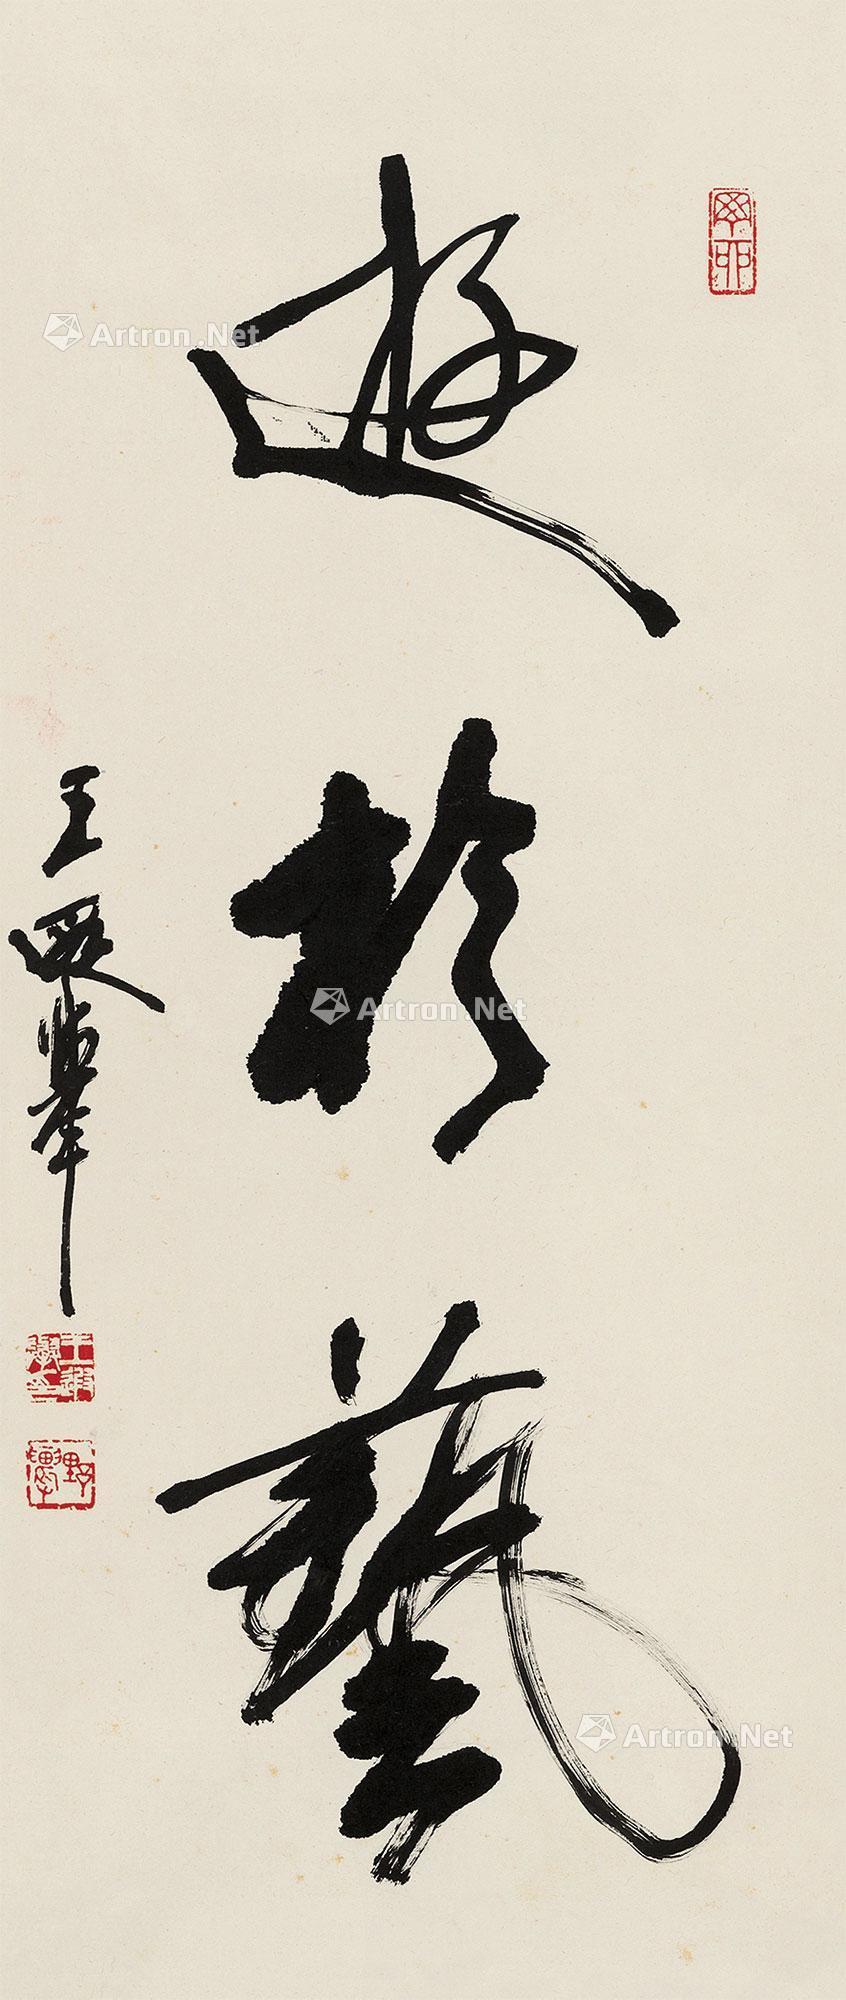 遊於藝
王
癸卯
Artron.Net
Artron.Net
Artron.Net